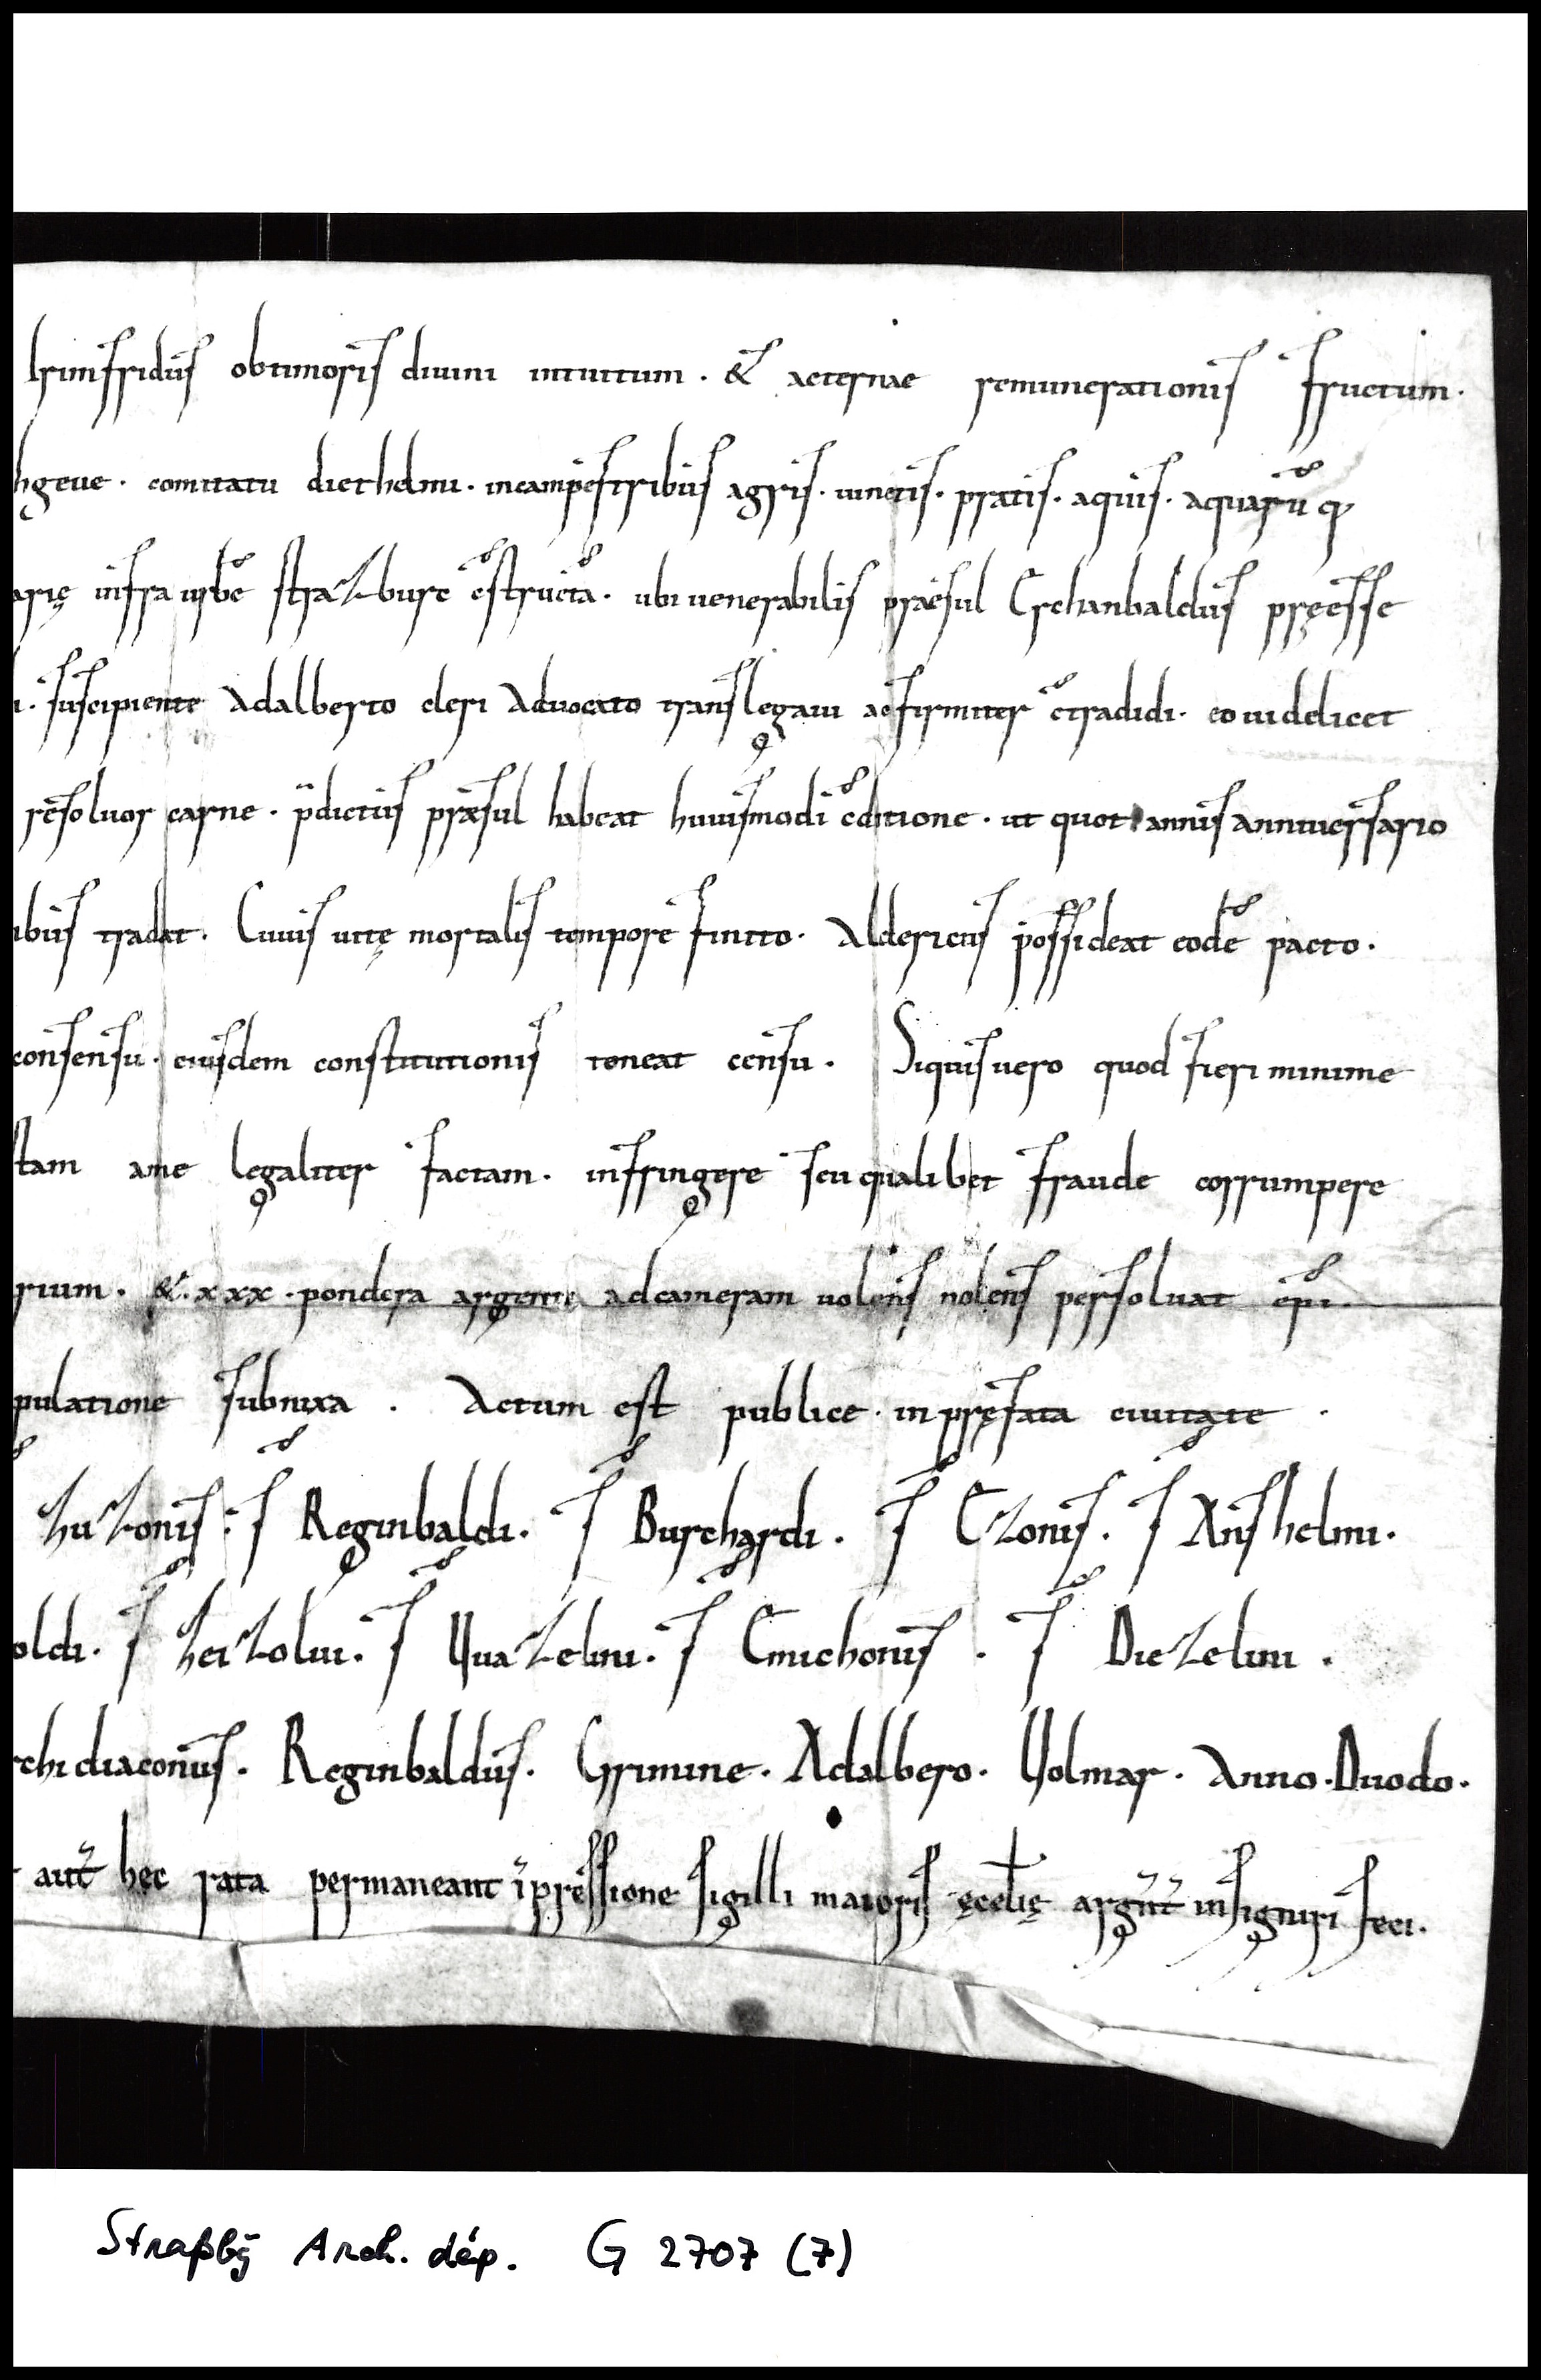 hrimfridus obtimoris divini intuitum · & aeternae remunerationis fructum ·
hgeue · comitatu diethelmi · incampestribus agris · vinetis · pratis · aquis · aquarū q;
arię infra urbē strazburc c̄structā · ubi venerabilis praesul Erchanbaldus pręesse
i · suscipiente Adalberto cleri Advocato translegavi acfirmiter c̄tradidi · eo videlicet
resolvor carne · p̄dictus praesul habeat huiusmodi c̄ditione · ut quot annis anniversario
ibus tradat · Cuius vitę mortalis tempore finito · Aldericus possideat eodē pacto ·
consensu · eiusdem constitutionis teneat censu · Siquis vero quod fieri minime
stam ame legaliter factam · infringere seu qualibet fraude corrumpere
rium · & · xxx · pondera argenti adcameram volens nolens persolvat ep̄i
pulatione subnixa · Actum est publice · inpręfata civitate ·
huzonis · S̄ Reginbaldi · S̄ Burchardi · S̄ Ezonis · S̄ Anshelmi ·
oldi · S̄ hezolini · S̄ Uuazelini · S̄ Emichonis · S̄ Diezelini ·
rchidiaconus · Reginbaldus · Grimine · Adalbero · Uolmar · Anno · Duodo ·
aut̄ hec rata permaneant īpressione sigilli maioris ęccl̄ię argn̄t̄ insigniri feci ·
Straßbg Arch. dép. G 2707 (7)